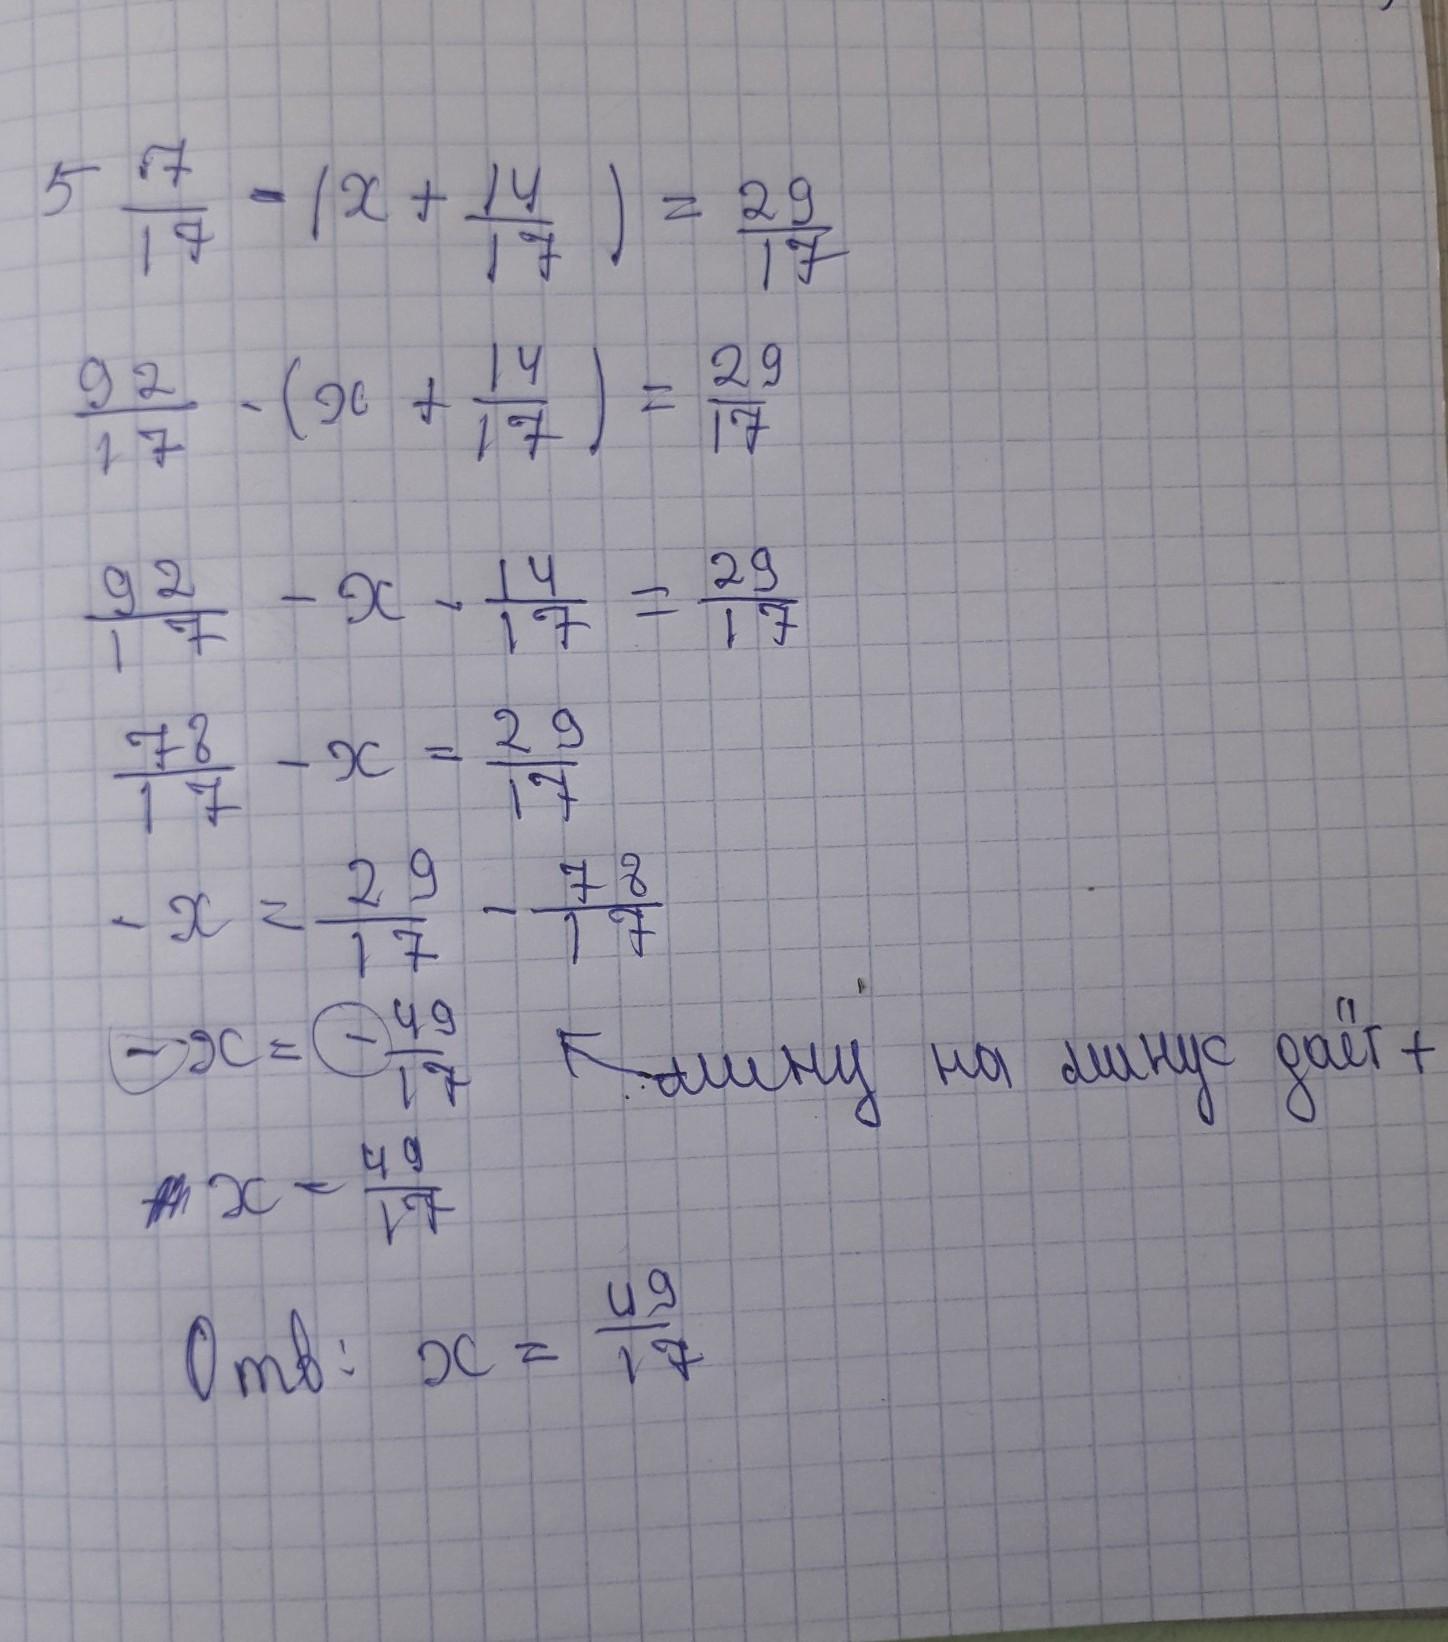 5 7/17 - (x + 14/17) = 29/17
92/17 - (x + 14/17) = 29/17
92/17 - x - 14/17 = 29/17
78/17 - x = 29/17
- x = 29/17 - 78/17
- x = - 49/17 минну на минус даёт +
x = 49/17
Отв: x = 49/17